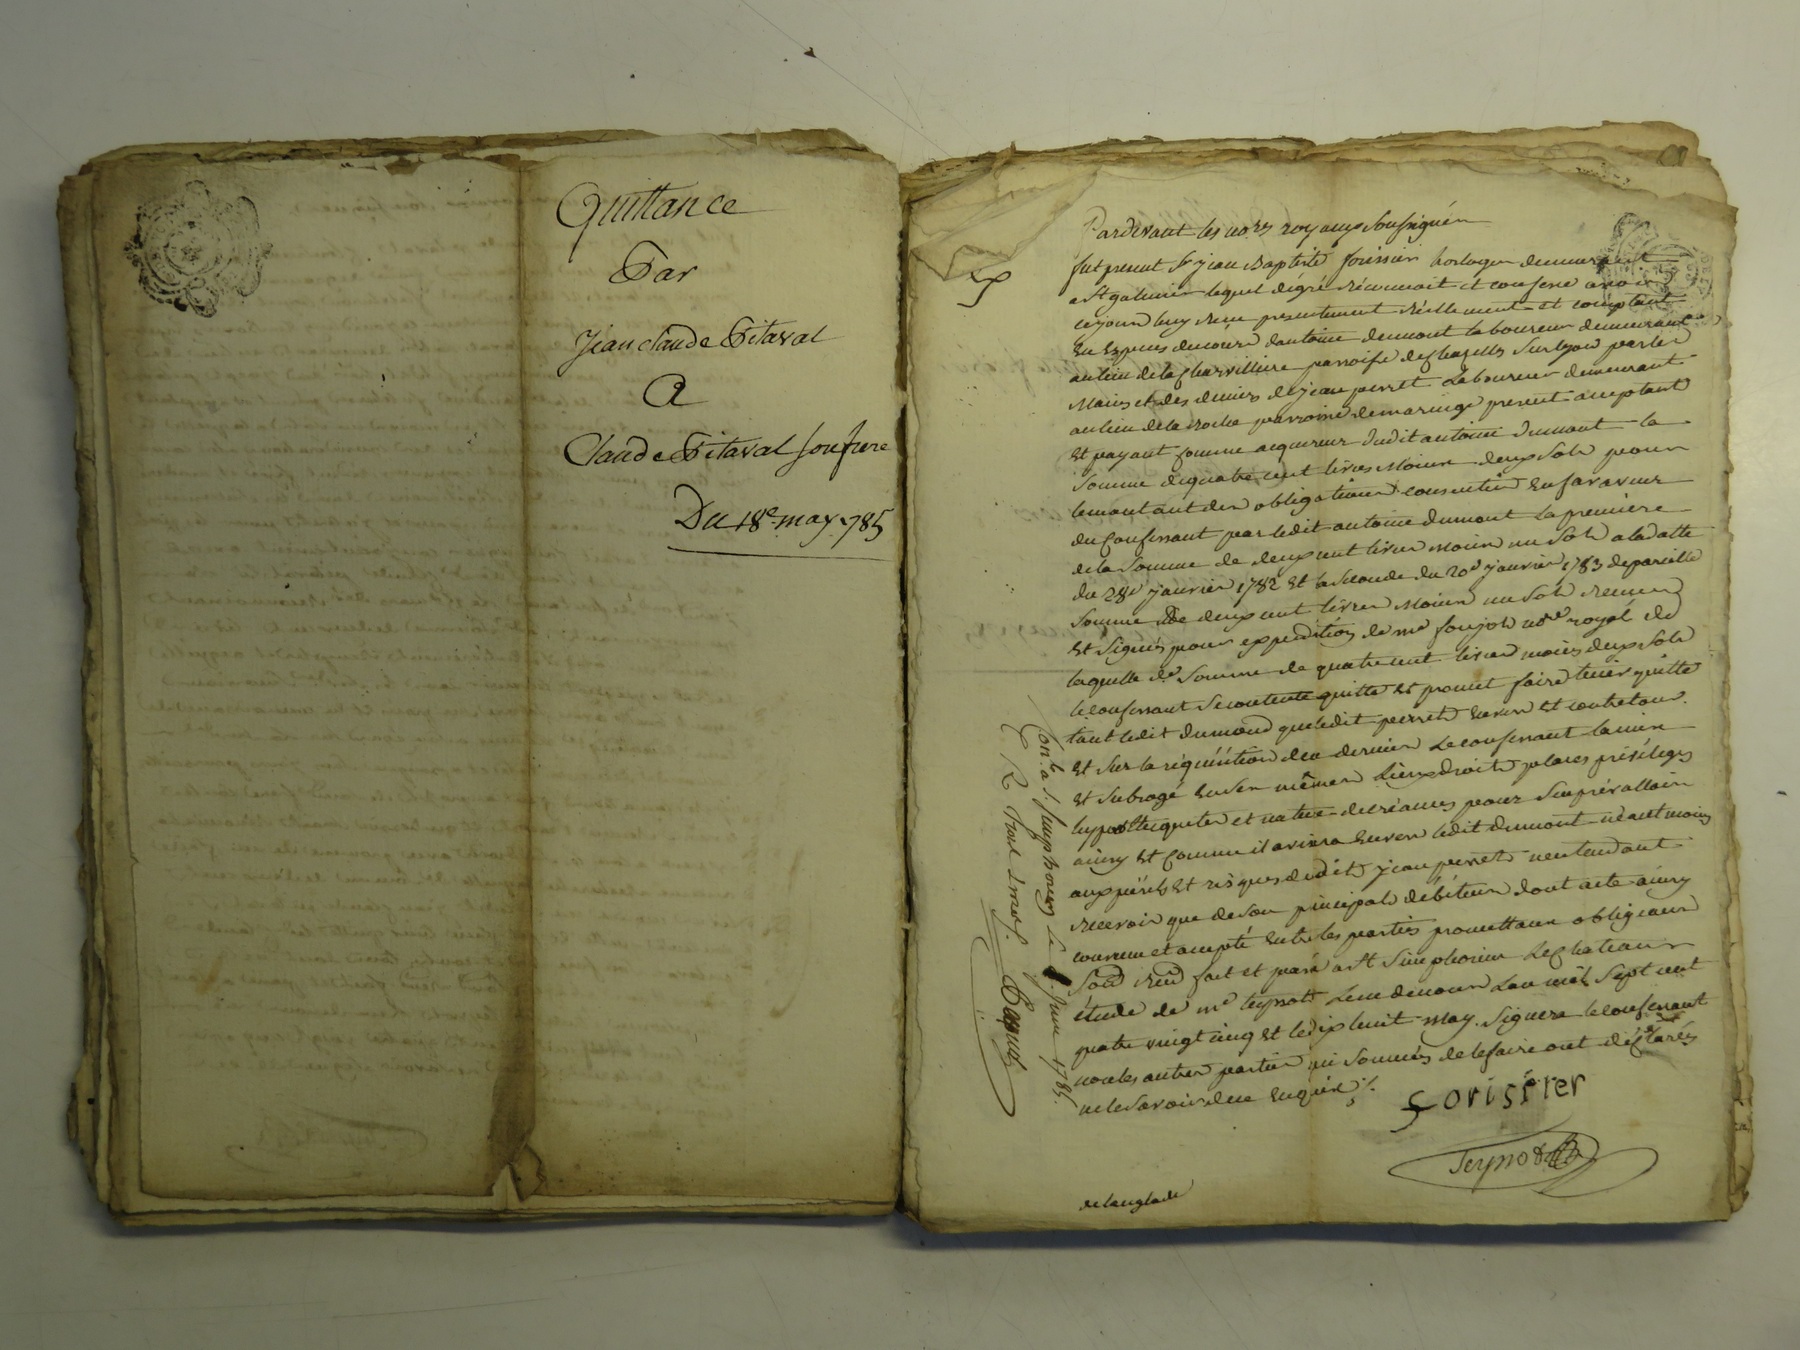 Quittance
Par
Jean claude Pitaval
A
Claude Pitaval son frere
Du 18e may 1785
Pardevant les nores royaux soussignés
fut present Sr jean Baptiste foissier horloger demeurant
a St galmier lequel de gré reconnoit et confesse avoir
cejourd'huy recu presentement reellement et comptant
en especes de cours d'antoine dumont laboureur demeurant
au lieu de la parroisse de chazelles sur lyon par les
Mains et des deniers de jean perret Laboureur demeurant
au lieu de la roche parroisse de maringe present acceptant
et payant comme acquereur dudit antoine dumont la
somme de quatre cent livres Moins deux sols pour
le montant des obligations consenties en faveur
du Confessant par ledit antoine dumont la premiere
de la somme de deux cent livres Moins un sols a la datte
du 28e janvier 1782 et la seconde du 20e janvier 1783 de pareille
somme de deux cent livres Moins un sols recues
et signés pour expedition de me nore royal de
laquelle de somme de quatre cent livres moins deux sols
le confessant se contente quitte et promet faire tenir quitte
tant ledit dumond que ledit perret envers et contre tous
et sur la requisition de ce dernier Le confessant la mis
et subrogé en ses mêmes Lieux droits places priviléges
hypotteques et nature de créances pour s'en prévalloir
ainsy et comme il avisera envers ledit dumont néantmoins
aux périls et risques dudit jean perret n'entendant
recevoir que de son principals débiteur dont acte ainsy
convenu et accepté entre les parties promettans obligeans
soud renō fait et passé a St Simphorien Le chateau
étude de me teynot L'un de nous L'an mil sept cent
quatre vingt cinq et le dix huit may. signera le confessant
non les autres parties qui sommés de le faire ont déclarés
ne le savoir de ce enquis ./.
forissier
Teynot
delanglade
Con.lé a St simphorien le juin 1785.